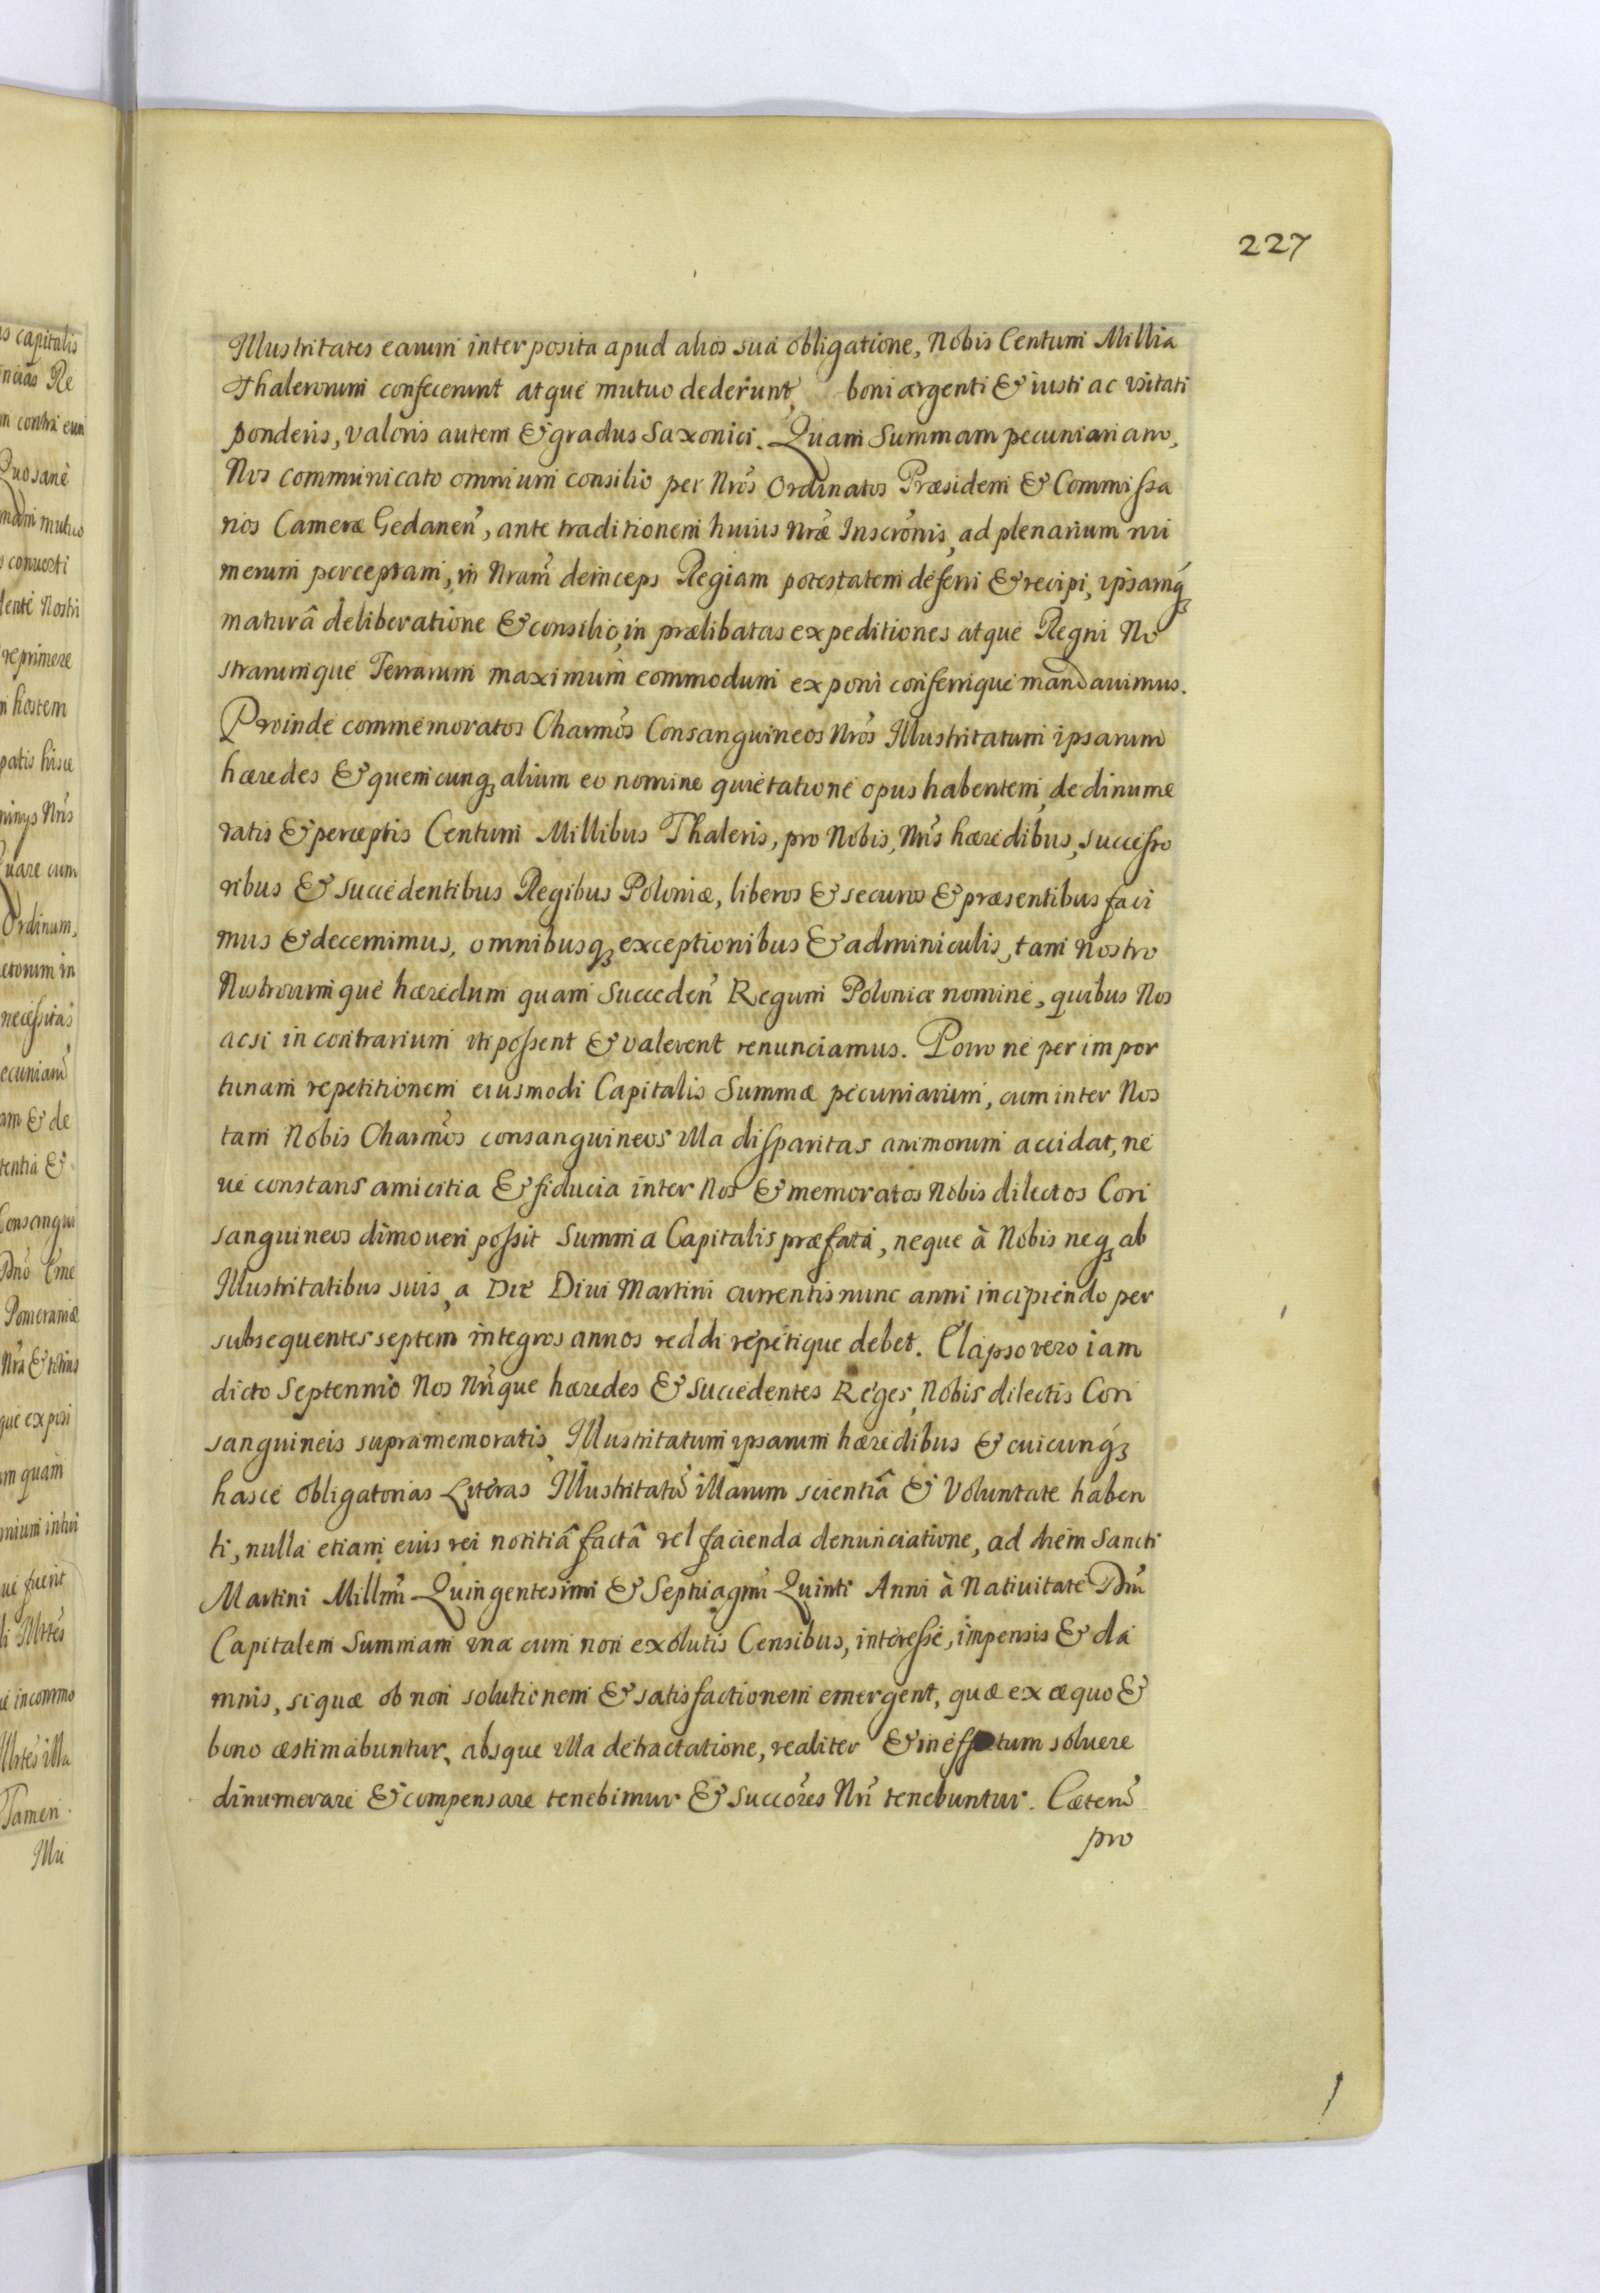 227
Illustritates earum interposita apud alios sua obligatione, Nobis Centum Millia
Thalerorum confecerunt atque mutuo dederunt, boni argenti & iusti ac vsitati
ponderis, valoris autem & gradus Saxonici. Quam Summam pecuniariam,
Nos communicato omnium consilio per Nros Ordinatos Præsidem & Commissa
rios Cameræ Gedanen, ante traditionem huius Nræ Inscronis, ad plenarium nu
merum perceptam, in Nram deinceps Regiam potestatem deferri & recipi, ipsamq
maturâ deliberatione & consilio, in prælibatas expeditiones atque Regni No
strarumque Terrarum maximum commodum exponi conferrique mandauimus.
Proinde commemoratos Charmos Consanguineos Nros Illustritatum ipsarum
hæredes & quemcunq alium eo nomine quietatione opus habentem, de dinume
ratis & perceptis Centum Millibus Thaleris, pro Nobis, Nris hæredibus, successo
ribus & succedentibus Regibus Poloniæ, liberos & securos & præsentibus faci
mus & decernimus, omnibusq exceptionibus & adminiculis, tam nostro
Nostrorumque hæredum quam Succeden Regum Poloniæ nomine, quibus Nos
acsi in contrarium vti possent & valerent renunciamus. Porro ne per impor
tunam repetitionem eiusmodi Capitalis Summæ pecuniarum, cum inter Nos
tam Nobis Charmos consanguineos vlla disparitas animorum accidat, ne
ue constans amicitia & fiducia inter Nos & memoratos Nobis dilectos Con
sanguineos dimoueri possit Summa Capitalis præfata, neque à Nobis neq ab
Illustritatibus suis, a Die Diui Martini currentis nunc anni incipiendo per
subsequentes septem integros annos reddi repetique debet. Elapso vero iam
dicto Septennio Nos Nrique hæredes & Succedentes Reges, Nobis dilectis Con
sanguineis supramemoratis, Illustritatum ipsarum hæredibus & cuicunq
hasce obligatorias Literas Illustritatu illarum scientiâ & Voluntate haben
ti, nulla etiam eius rei notitiâ factâ vel facienda denunciatione, ad diem Sancti
Martini Millmi Quingentesimi & Septuagmi Quinti Anni à Natiuitate Dni
Capitalem Summam vna cum non exolutis Censibus, interesse, impensis & da
mnis, si quæ ob non solutionem & satisfactionem emergent, quæ ex æquo &
bono æstimabuntur, absque vlla detractatione, realiter & in effectum soluere
dinumerare & compensare tenebimur & Succores Nri tenebuntur. Cæteru
pro